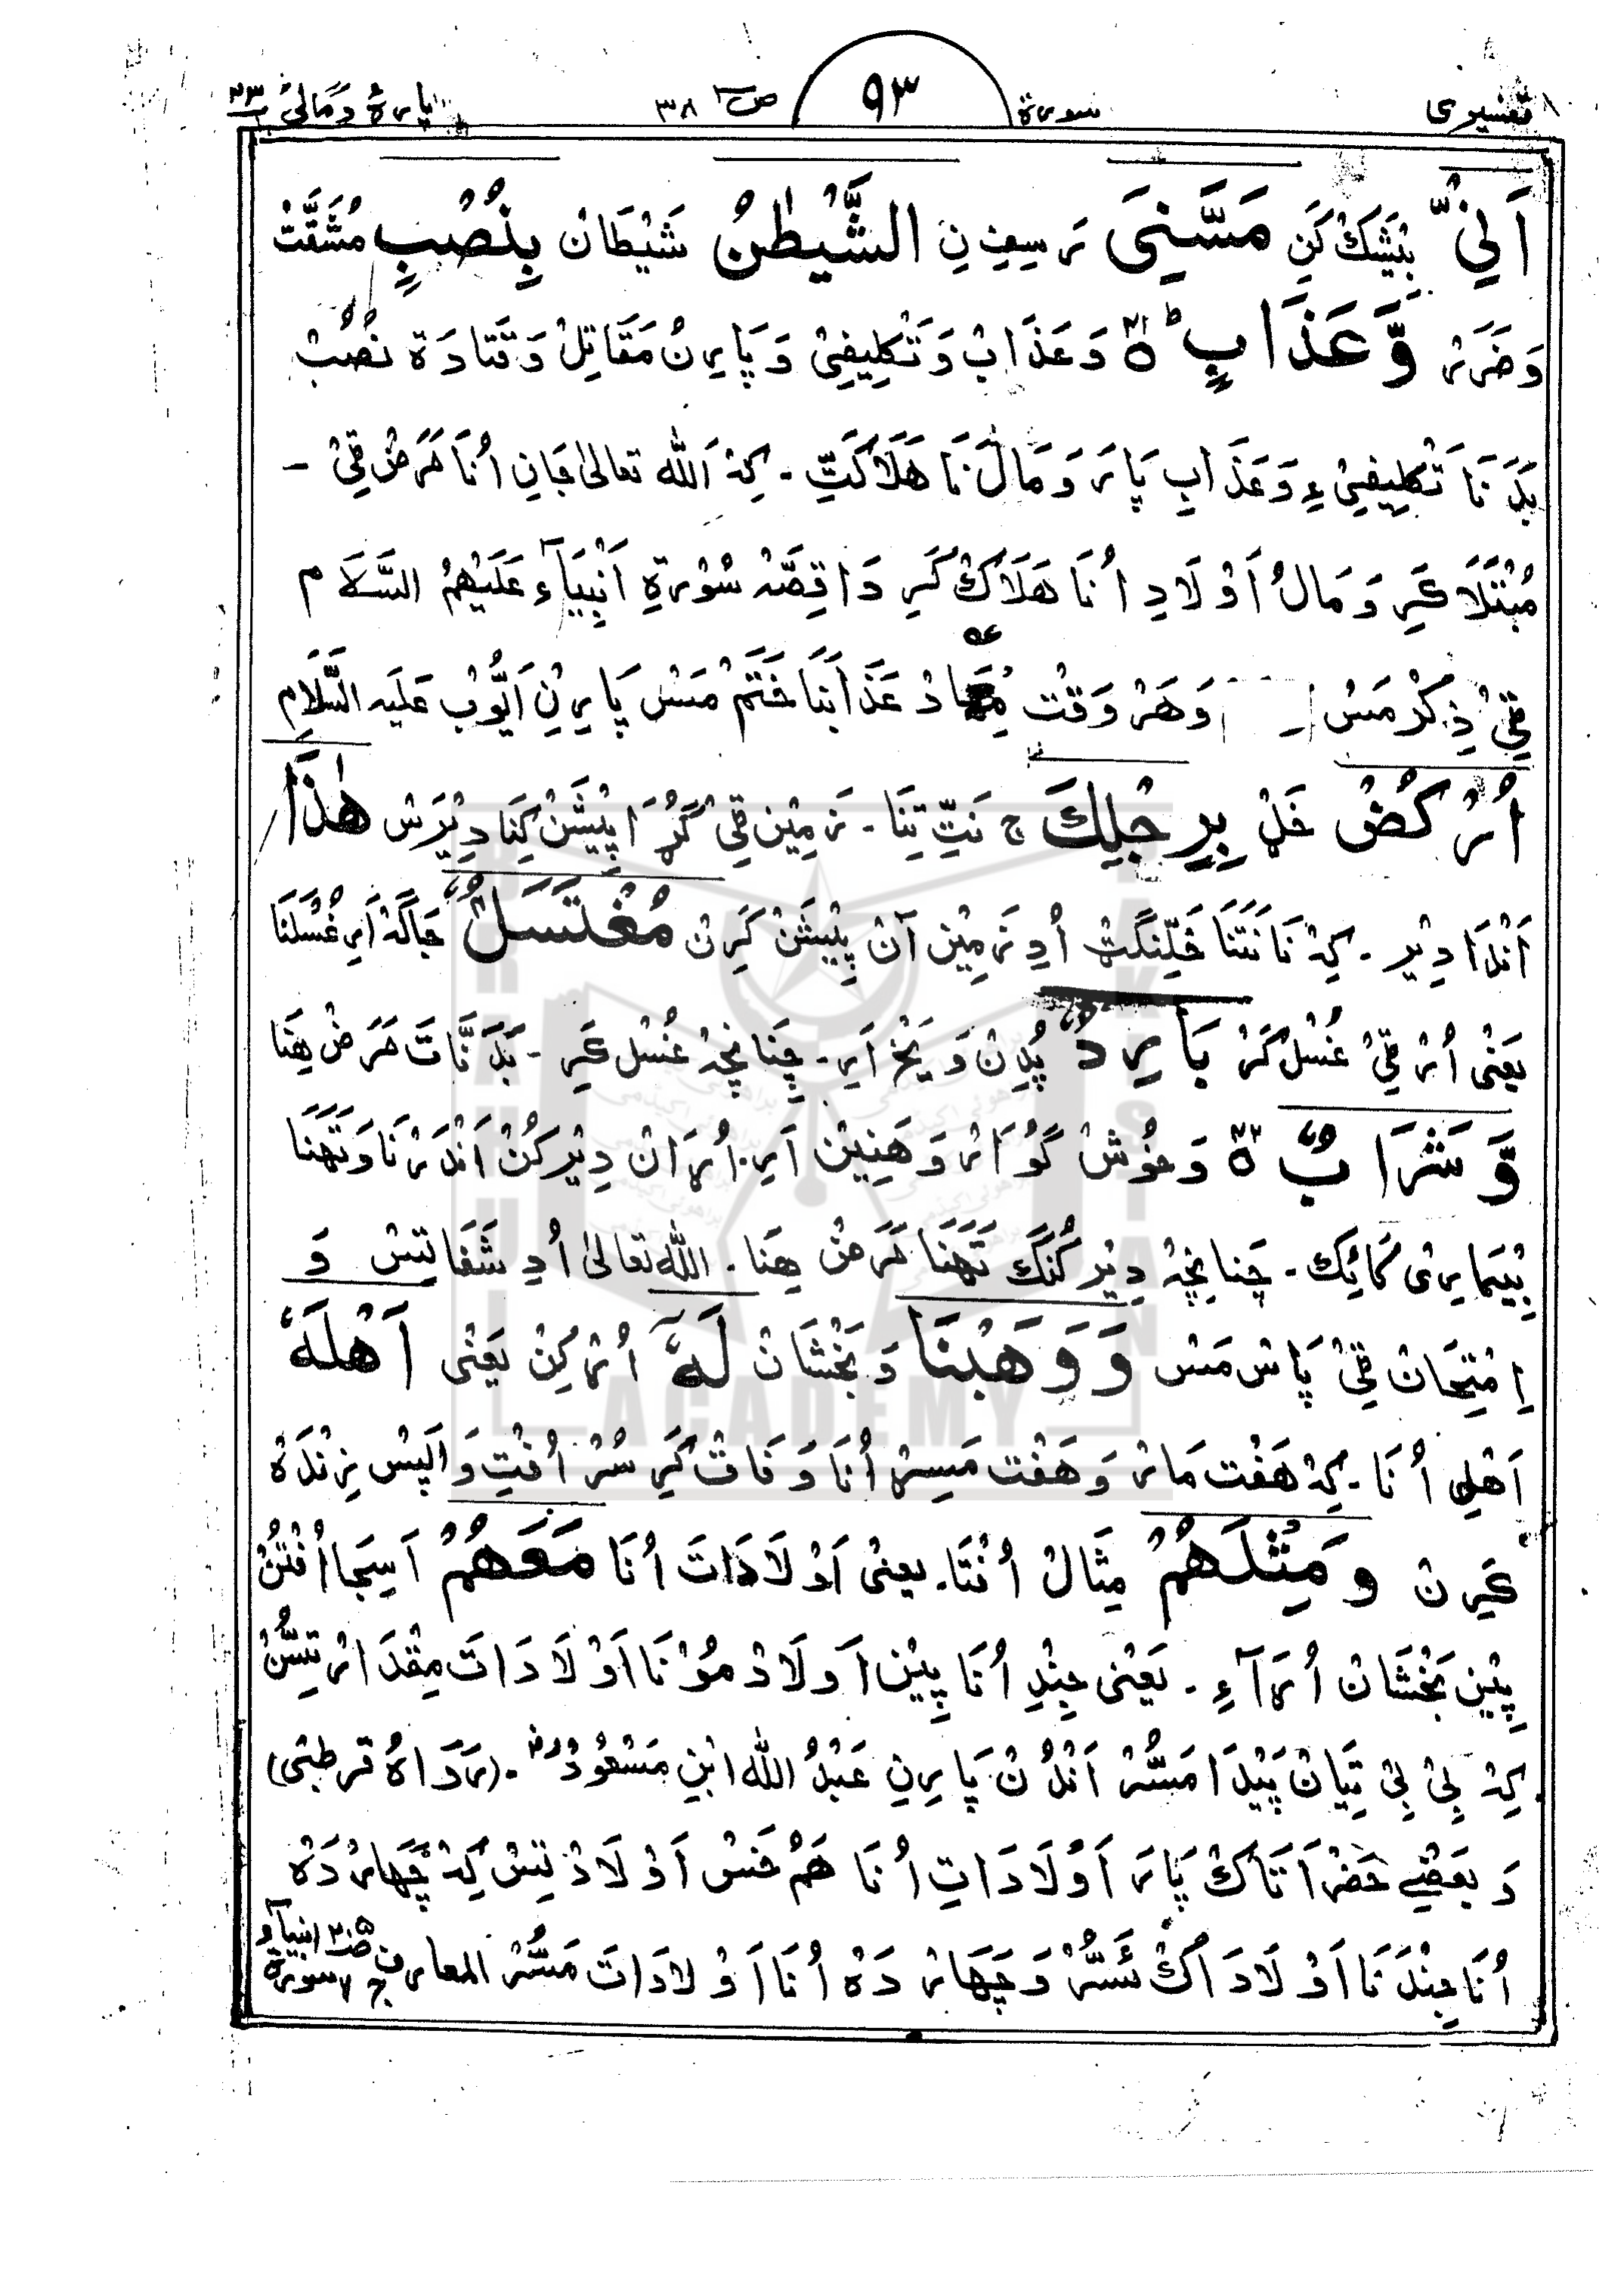 تفسیری سورة ۹۳ ص ۳۸ پارهٔ دمالی ۲۳
اَنِّیْ بِیْشَكْ كَنِ مَسَّنِیَ رَسِفِ نِ الشَّیْطٰنُ شَیْطَانْ بِنُصْبٍ مُشَقَّتْ
وَضَرَرْ وَّعَذَابٍ ؕ ۴۱ وَعَذَابْ وَتَكْلِیفِیْ وَپَارِنْ مَقَاتِلْ وَقَتَادَة نُصُبْ
بَدَ نَا تَكْلِیفِیْ ءِ وَعَذَابِ پَارَ وَمَالْ نَا هَلَاكَتِّ - كِهْ اَللّٰه تعالیٰ جَانِ اُنَا مَرَضْ ٹِیْ -
مُبْتَلَا كَرِ وَمَالْ اَوْلَادِ اُنَا هَلَاكْ كَرِ دَا قِصَّهْ سُوْرَةِ اَنْبِیَآء عَلَیْهِمُ السَّلَام
ٹِیْ ذِكْرْ مَسْ وَهَرْ وَقْت عَذَابْنَا خَتَمْ مَسْ پَارِنِ اَیُّوْب عَلَیه السَّلَامِ
اُرْكُضْ خَلْ بِرِجْلِكَ ج نَتِّ تِنَا - زَمِیْن ٹِیْ گُڑَا پِیْشَنْ كِنَا دِیْرَسْ هٰذَا
اَنْدَا دِیْر - كِهْ نَا نَتَنَا خَلِّنِگَتْ اُدِ زَمِیْن آنْ پِیْشَنْ كَرِنْ مُغْتَسَلٌۢ جَاگَهْ اَرِ غُسْلَنَا
یَعْنٰی اُرْ ٹِیْ غُسْلْ كَرْ بَارِدٌ پُدِنْ وَیَخْ اَرِ - چَنَانچِهْ غُسْل كَرِ - بَدَ نَّاتَ مَرَضْ هِنَا
وَّشَرَابٌ ۴۲ وَخُوْشْ گُوَارْ وَهَنِیْن اَرِ. اُرَانْ دِیْر كُنْ اَنْدَرْنَا وَتَهَنَا
بِیْمَارِیْ كَائِك - چَنانِچِهْ دِیْر كُنَنگ تَهَنَا مَرَضْ هِنَا - اللّٰه تعالیٰ اُدِ شَفَا تِسْ وَ
اِمْتِحَانْ ٹِیْ پَاسْ مَسْ وَوَهَبْنَا وَبَخْشَانْ لَهٗٓ اُرْكِنْ یَعْنٰی اَهْلَهٗ
اَهْلِ اُنَا - كِهْ هَفْت مَارْ وَهَفْت مَسِڑْ اُنَا وَفَاتْ كَرِ سُرْ اُفْتِ وَاپَسْ زِنْدَهْ
كَرِنْ وَمِثْلَهُمْ مِثَالْ اُنْتَا - یعنٰی اَوْلَادَاتَ اُنَا مَعَهُمْ اَسِجَا اُفْتُنْ
پِیْن بَخْشَانْ اُرَآءِ - یَعْنٰی جِنْدِ اُنَا پِیْن اَولَادْ مُوْنَا اَوْلَادَاتَ مِقْدَارْ تِسُّنْ
كِهْ بِیْ بِیْ تِیَانْ پَیْدَا مَسُّرْ اَنْدُنْ پَارِنِ عَبْدُ اللّٰه ابْنِ مَسْعُوْدْ رض - (رَوَاهُ قرطبی)
وَ بَعْضِے حَضْرَاتَاكْ پَارَ اَوْلَادَاتِ اُنَا هَمْ خَسْ اَوْلَادْ تِسْ كِهْ چَهَارْ دَهْ
اُنَا جِنْدَ نَا اَوْلَادَاكْ سُّرْ وَچَهَارْ دَهْ اُنَا اَوْلادَاتَ مَسُّرْ المعارف ج ۷ ص ۲۰۵ سورة انبیآء